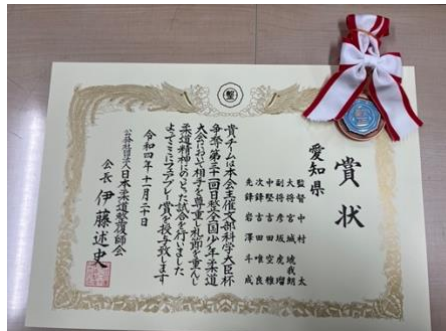 賞状
愛知県
監督 中村 太
大将 宮城 琥我朗
副将 坂 虎瑠
中堅 吉田 空雅
次鋒 吉田 唯良
先鋒 岩澤 斗成
貴チームは本会主催文部科学大臣杯
争奪第三十一回日整全国少年柔道
大会において相手を尊重し礼節を重んじ
柔道精神にのっとった試合を行いました
よってここにフェアプレー賞を授与致します
令和四年十一月二十日
公益社団法人日本柔道整復師会
会長 伊藤述史